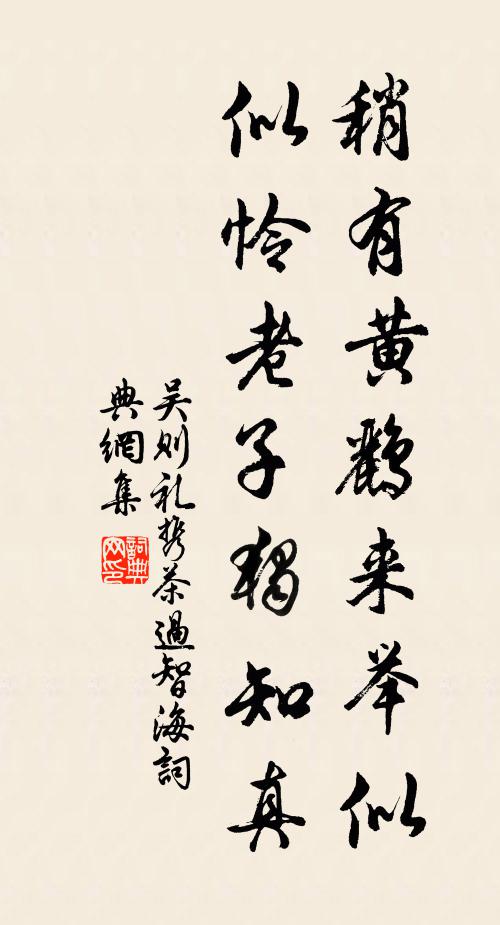 稍有黄鸝来举似
似怜老子独知真
吴则礼携茶過智海詞
典網集
詞典网印